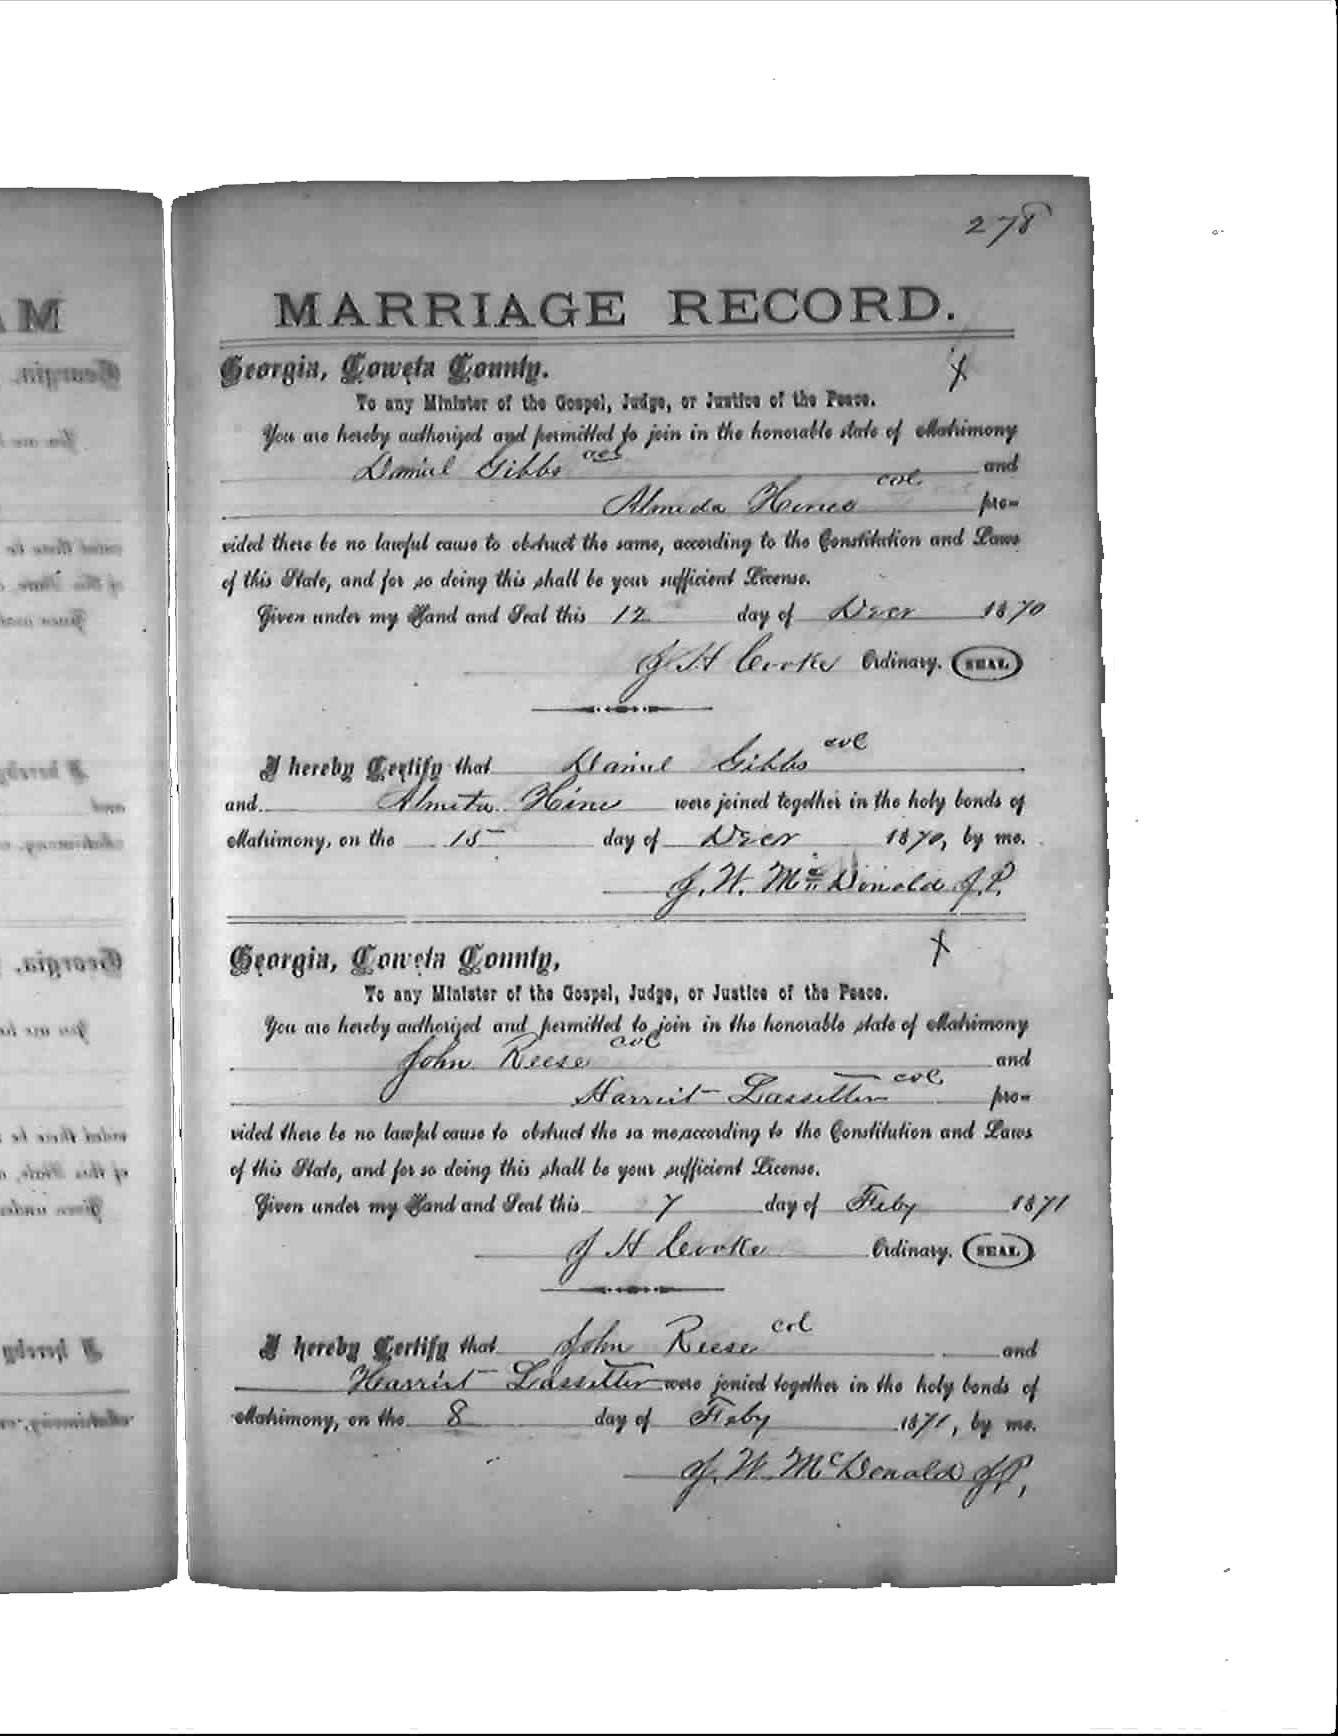 278
MARRIAGE RECORD.
Georgia, Coweta County.
To any Minister of the Gospel, Judge, or Justice of the Peace.
You are hereby authorized and permitted to join in the honorable state of Matrimony
Daniel Gibbs col and
Almeda Hines col pro-
vided there be no lawful cause to obstruct the same, according to the Constitution and Laws
of this State, and for so doing this shall be your sufficient License.
Given under my Hand and Seal this 12 day of Decr 1870
J H Cooke Ordinary. SEAL
I hereby Certify that Daniel Gibbs col
and Almeta Hines were joined together in the holy bonds of
Matrimony, on the 15 day of Decr 1870, by me.
J. W. McDonald J.P.
Georgia, Coweta County,
To any Minister of the Gospel, Judge, or Justice of the Peace.
You are hereby authorized and permitted to join in the honorable state of Matrimony
John Reese col and
Harriet Lassetter col pro-
vided there be no lawful cause to obstruct the sa me,according to the Constitution and Laws
of this State, and for so doing this shall be your sufficient License.
Given under my Hand and Seal this 7 day of Feby 1871
J H Cooke Ordinary. SEAL
I hereby Certify that John Reese col and
Harriet Lassetter were jonied together in the holy bonds of
Matrimony, on the 8 day of Feby 1871, by me.
J. W. McDonald J.P.,